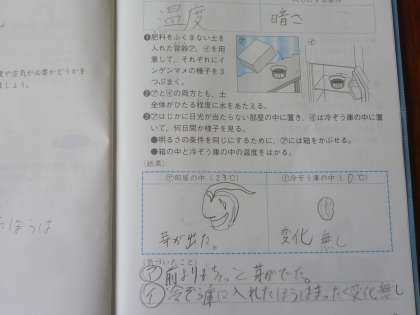 温度
暗さ
❶肥料をふくまない土を
入れた容器㋐、㋑を用
意して、それぞれにイ
ンゲンマメの種子を3
つぶまく。
㋐
㋑
❷㋐と㋑の両方とも、土
全体がひたる程度に水をあたえる。
❸㋐はじかに日光が当たらない部屋の中に置き、㋑は冷ぞう庫の中に置
いて、何日間か様子を見る。
●明るさの条件を同じにするために、㋐には箱をかぶせる。
●箱の中と冷ぞう庫の中の温度をはかる。
(結果)
㋐部屋の中(23℃)
㋑冷ぞう庫の中(0℃)
芽が出た。
変化 無し
(気づいたこと)
㋐前よりもちょっと芽がでた。
㋑冷ぞう庫に入れたほうはまったく変化無し
ましょう。
ほうは